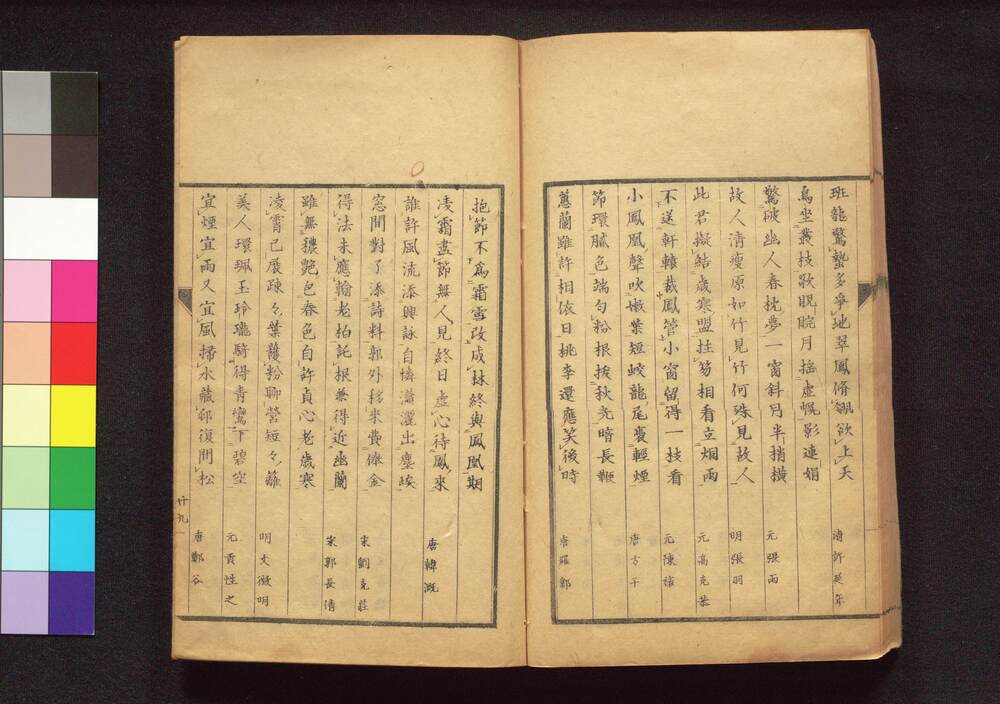 班龍驚蟄多爭地翠鳳脩翎欲上天 清許延年
鳥坐叢技歌睍睆月搖虛幌影連娟
驚破幽人春枕夢一窗斜月半捎橫 元張雨
故人清瘦原如竹見竹何殊見故人 明張羽
此君擬結歲寒盟拄笏相看立烟雨 元高克恭
不送軒轅裁鳳管小窗留得一技看 元陳
小鳳凰聲吹嫩葉短蛟龍尾裊輕煙 唐方干
節環膩色端勻粉根拔秋光暗長鞭
蕙蘭雖許相依日桃李還應笑後時 唐羅鄴
抱節不為霜雪改成林終與鳳凰期
凌霜盡節無人見終日虛心待鳳來 唐韓溉
誰許風流添興詠自憐瀟灑出塵埃
窓間對了添詩料郭外移來費俸金 宋劉克莊
得法未應輸老柏託根兼得近幽蘭 宋郭長清
雖無穠艷色春色自許貞心老歲寒
凌霄已展疎々葉護粉聊營短々籬 明文徵明
美人環珮玉玲瓏騎得青鸞下碧空 元貢性之
宜煙宜雨又宜風掃水藏邨復間松 唐鄭谷
廿九